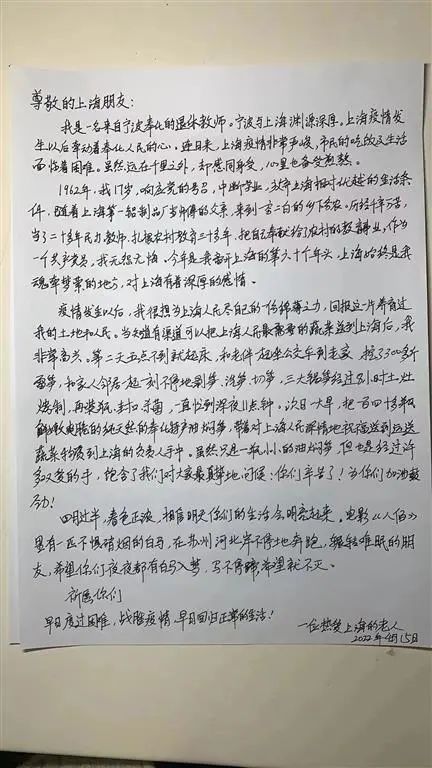 尊敬的上海朋友：
我是一名来自宁波奉化的退休教师。宁波与上海渊源深厚。上海疫情发
生以后牵动着奉化人民的心。近日来，上海疫情非常严峻，市民的吃饭及生活
面临着困难。虽然远在千里之外，却感同身受，心里也备受煎熬。
1962年，我17岁，响应党的号召，中断学业，放弃上海相对优越的生活条
件，随着上海第一铅制品厂当师傅的父亲，来到一穷二白的乡下务农。历经千辛万苦，
当了二十多年民办教师，扎根农村教育三十多年，把自己奉献给了农村的教育事业，作为
一个共产党员，我无怨无悔。今年是我离开上海的第六十个年头，上海始终是我
魂牵梦萦的地方，对上海有着深厚的感情。
疫情发生以后，我很想为上海人民尽自己的一份绵薄之力，回报这一片养育过
我的土地和人民。当知道有渠道可以把上海人民最需要的蔬菜送到上海后，我
非常高兴。第二天五点不到就起床，和老伴一起坐公交车到老家，挖了300多斤
雷笋，和家人邻居一起一刻不停地剥笋、洗笋、切笋，三大锅笋经过8小时土灶
烧制，再装瓶、封口、杀菌，一直忙到深夜11点钟。次日一大早，把一百四十多瓶
的纯天然的奉化特产油焖笋，带着对上海人民深情地祝福送到运送
蔬菜物资到上海的负责人手中。虽然只是一瓶小小的油焖笋，但也是经过许
多双爱的手，饱含了我们对大家最真挚地问候：你们辛苦了！为你们加油鼓
劲！
四月过半，春色正浓，相信明天你们的生活会明亮起来，电影《八佰》
里有一匹不惧硝烟的白马，在苏州河北岸不停地奔跑，辗转难眠的朋
友，希望你们夜夜都有白马入梦，马不停蹄希望就不灭。
祈愿你们
早日度过困难，战胜疫情，早日回归正常的生活！
一位热爱上海的老人
2022年4月15日